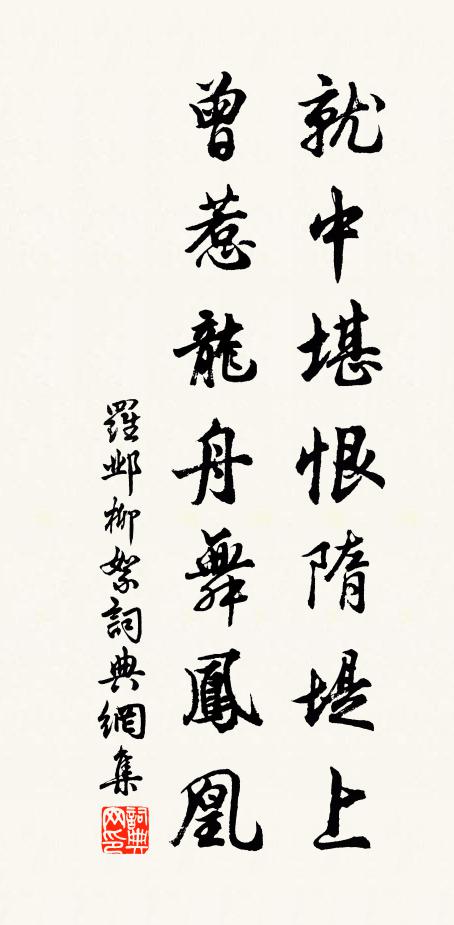 就中堪恨隋堤上
曾惹龍舟舞鳳凰
羅鄴柳絮詞典網集
詞典
网印